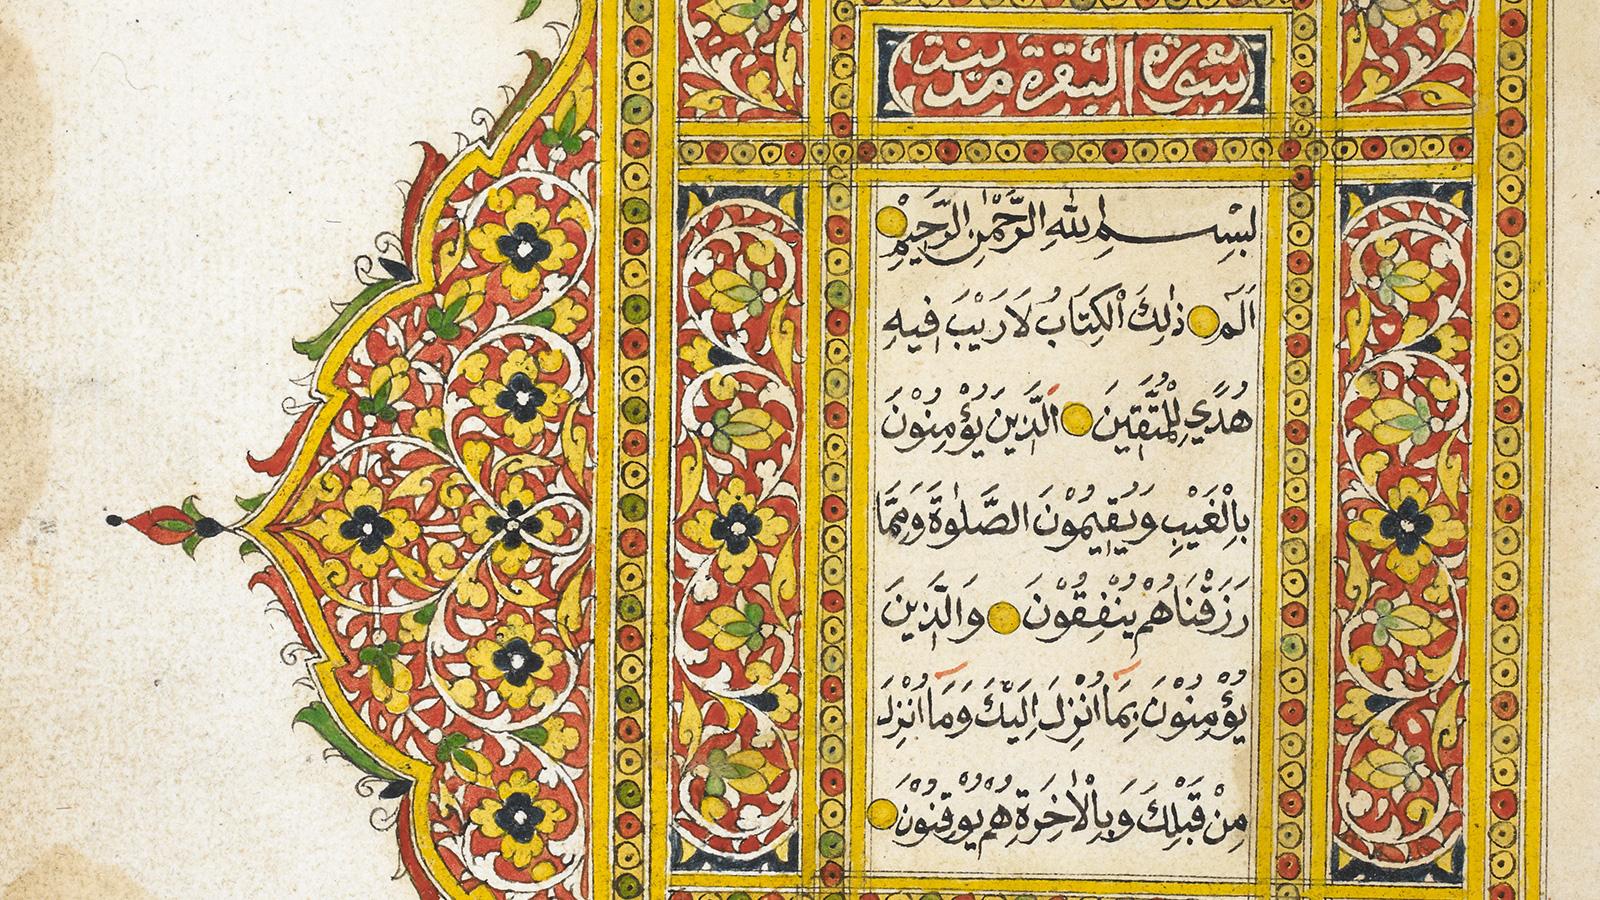 سورة البقرة مدنية
بِسْمِ اللهِ الرَّحْمٰنِ الرَّحِيْمِ
الٓمٓ ذٰلِكَ الْكِتَابُ لَارَيْبَ فِيهِ
هُدًي لِلْمُتَّقِينَ الَّذِينَ يُؤْمِنُوْنَ
بِالْغَيْبِ وَيُقِيْمُوْنَ الصَّلٰوةَ وَمِمَّا
رَزَقْنَاهُمْ يُنْفِقُوْنَ وَالَّذِينَ
يُؤْمِنُوْنَ بِمَا اُنْزِلَ اِلَيْكَ وَمَا اُنْزِلَ
مِنْ قَبْلِكَ وَبِالْاٰخِرَةِ هُمْ يُوْقِنُوْنَ